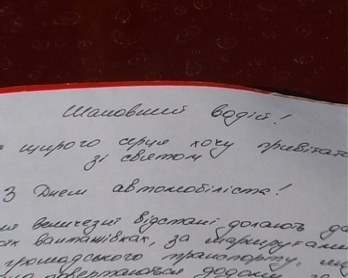 Шановний водій!
щирого серця хочу привітати
зі святом
З Днем автомобіліста!
величезні відстані долають
вантажівках, за маршрутами
громадського транспорту,
додому